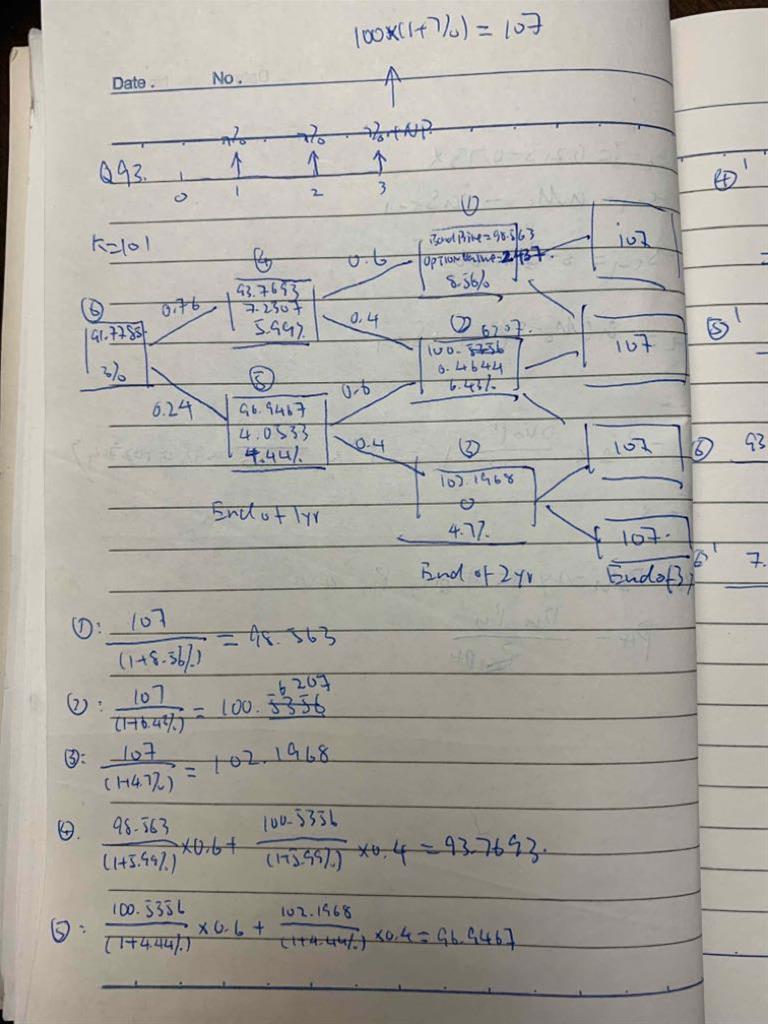 100×(1+7%) = 107
Date. No.
7% 7% 7%+NP.
Q93.
0 1 2 3
K=101
①
Bond Price=98.563
Option Value=2.437.
8.56%
107
④
93.7693
7.2307
5.99%
0.6
0.4
⑥
91.7785
3%
0.76
0.24
② 6207.
100.5356
0.4644
6.43%
107
⑤
96.9467
4.0533
4.44%
0.6
0.4
③
102.1968
0
4.7%
107
107.
End of 1yr
End of 2yr
End of 3
①: 107/(1+8.56%) = 98.563
②: 107/(1+6.42%) = 100.5356 6207
③: 107/(1+4.7%) = 102.1968
④. 98.563/(1+5.99%) ×0.6 + 100.5356/(1+5.99%) ×0.4 = 93.7693.
⑤: 100.5356/(1+4.44%) ×0.6 + 102.1968/(1+4.44%) ×0.4 = 96.9467
④'
⑤'
⑥ 93
⑥' 7.